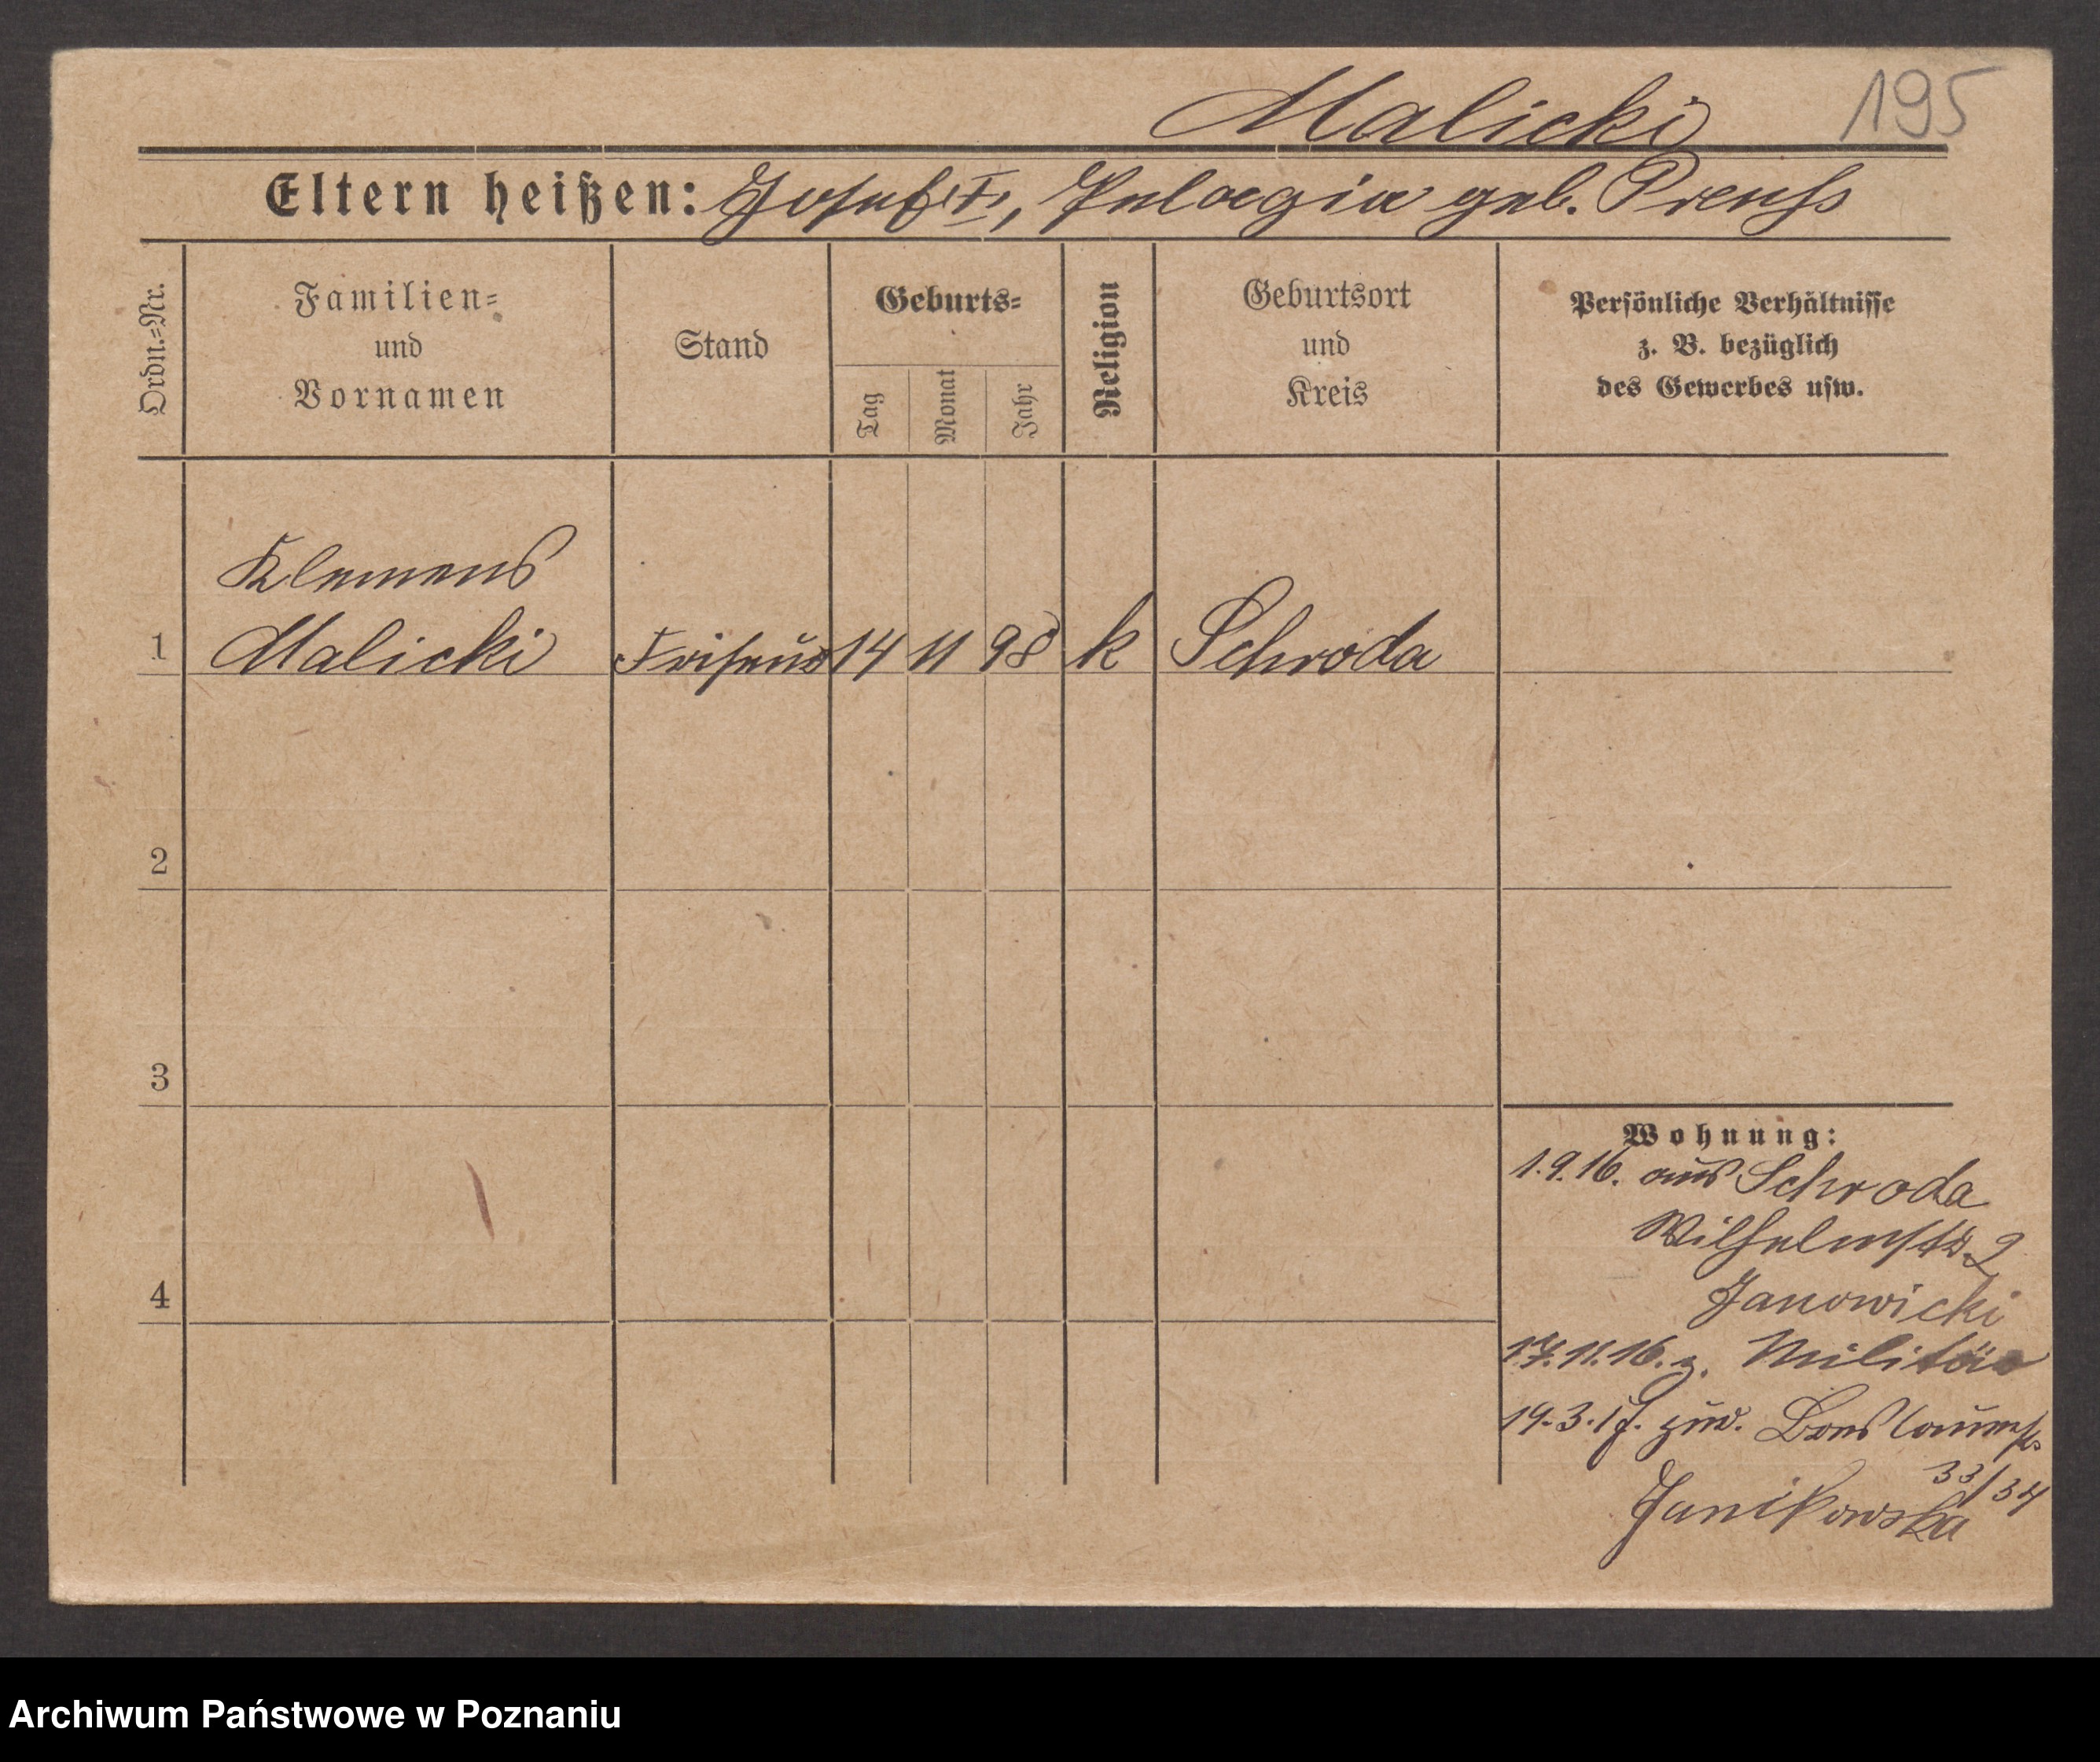 Malicki 195
Eltern heißen: Josef(†), Pelagia geb. Preuß
Ordn.=Nr.
Familien=
und
Vornamen
Stand
Geburts=
Tag
Monat
Jahr
Religion
Geburtsort
und
Kreis
Persönliche Verhältnisse
z. B. bezüglich
des Gewerbes usw.
Klemens
1 Malicki Friseur 14 11 98 k Schroda
2
3
4
Wohnung:
1.9.16. aus Schroda
Wilhelmstr. 2
Janowicki
17.11.16. z. Militär
19.3.17. zur.
33/34
Janikowska
Archiwum Państwowe w Poznaniu